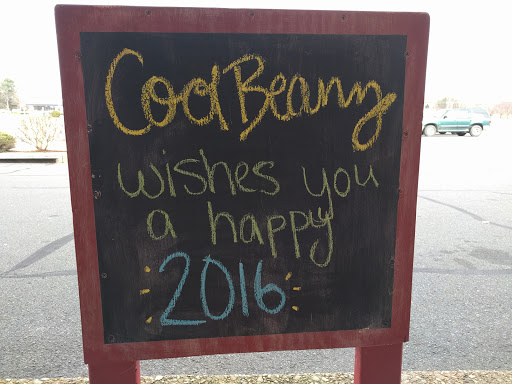 Cool Beanz
wishes you
a happy
2016